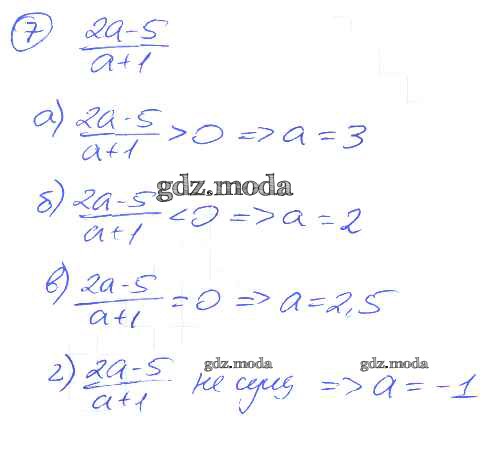 7 (2a-5)/(a+1)
а) (2a-5)/(a+1) > 0 => a = 3
gdz.moda
б) (2a-5)/(a+1) < 0 => a = 2
в) (2a-5)/(a+1) = 0 => a = 2,5
gdz.moda gdz.moda
г) (2a-5)/(a+1) не сущ => a = -1